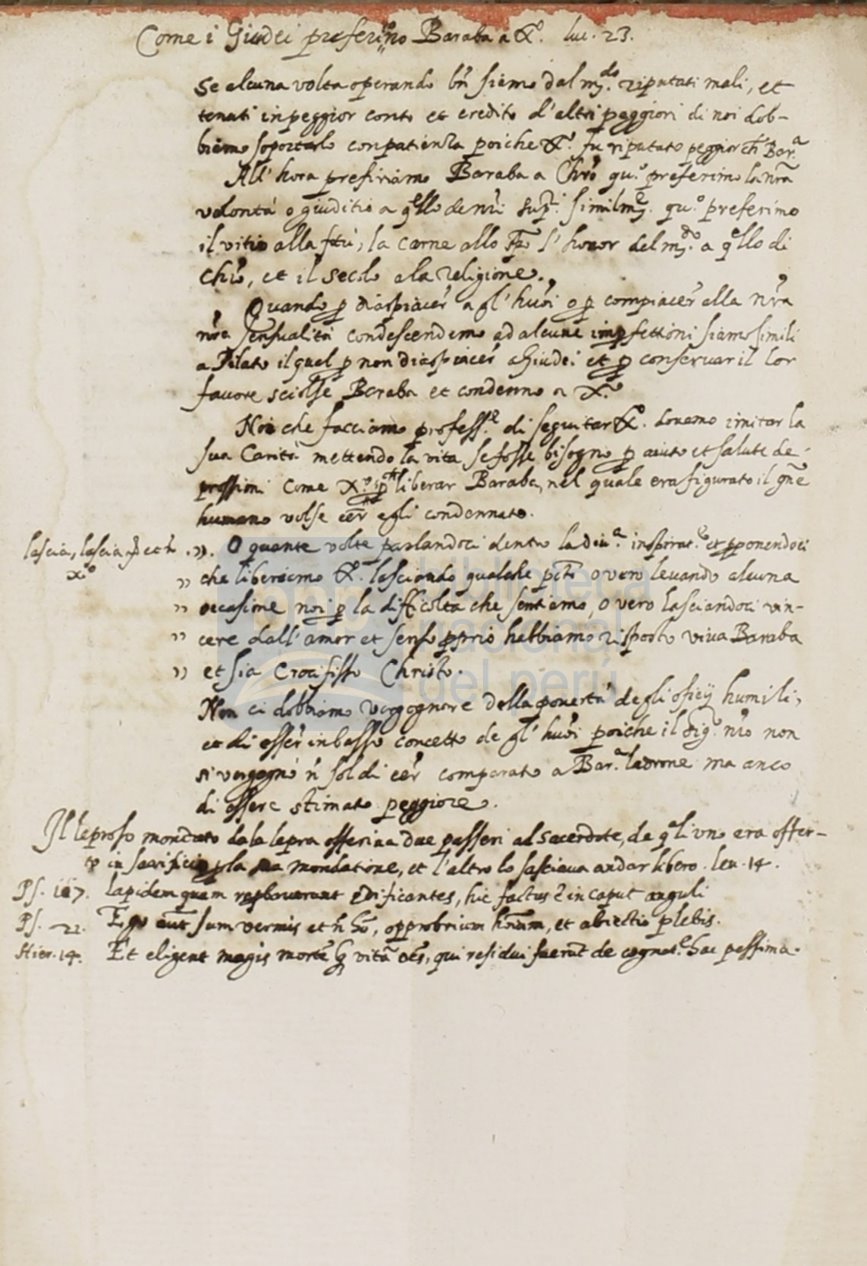 Come i Giudei preferirno Baraba a Xº. luc. 23.
Se alcuna volta operando bñ siamo dal mº.do riputati mali, et
tenuti in peggior conto et credito d'altri peggiori di noi dob-
biamo soportarlo con patienza poiche Xº. fu riputato peggior ch Bar.ª
All'hora preferiamo Baraba a Chro qu.º preferimo la nrã
volontà o giuditio a qllo de nri sup.ri similmᵉ. qu.º preferimo
il vitio alla virtù, la carne allo spº l'honor del mº.do a qllo di
Chrõ, et il secolo a la religione.
Quando p̱ diaspiacer a gl'huõi o p̱ compiacer alla nrã
nrã sensualità condescendemo ad alcune impfettioni siamo simili
a Pilato il qual p̱ non diaspiacer a Giudei et p̱ conservar il lor
favore sciolse Baraba et condennò a Xº
Noi che facciamo professº.ᵉ di seguitar Xº. dovemo imitar la
sua Carità mettendo la vita se fosse bisogno p̱ aiuto et salute de
prossimi come Xº. p̱ liberar Baraba, nel quale era figurato il gñe
humano volse eer egli condennato.
lascia, lascia
Xº
» . O quante volte parlandoci dentro la diu.ª inspirat.ᵉ et p̱ponendoci
» che liberiamo Xº. lasciando qualche pctõ overo levando alcuna
» occasione noi p̱ la difficoltà che sentiamo, overo lasciandoci vin-
» cere dall'amor et senso p̱prio habbiamo risposto viva Baraba
» et sia Crocifisso Christo.
Non ci dobbiamo vergognare della povertà degli oficij humili,
et di esser in basso concetto de gl'huõi poiche il Sig.ʳ nro non
si vergognò ñ sol di eer comparato a Bar.ª ladrone ma anco
di essere stimato peggiore.
Il leproso mondato dala lepra offeriva due passeri al sacerdote, de qli uno era offer-
to in sacrificio p̱ la sua mondatione, et l'altro lo lasciava andar libero. leu. 14.
Ps. 117. lapidem quem reprobaverunt edificantes, hic factus ẽ in caput anguli
Ps. 21. Ego aũt sum vermis et ñ hõ, opprobrium hõnum, et abiectio plebis.
Hier. 14. Et eligent magis mortẽ q̃ vitã oẽs, qui residui fuerũt de cognat.ᵉ hac pessima.